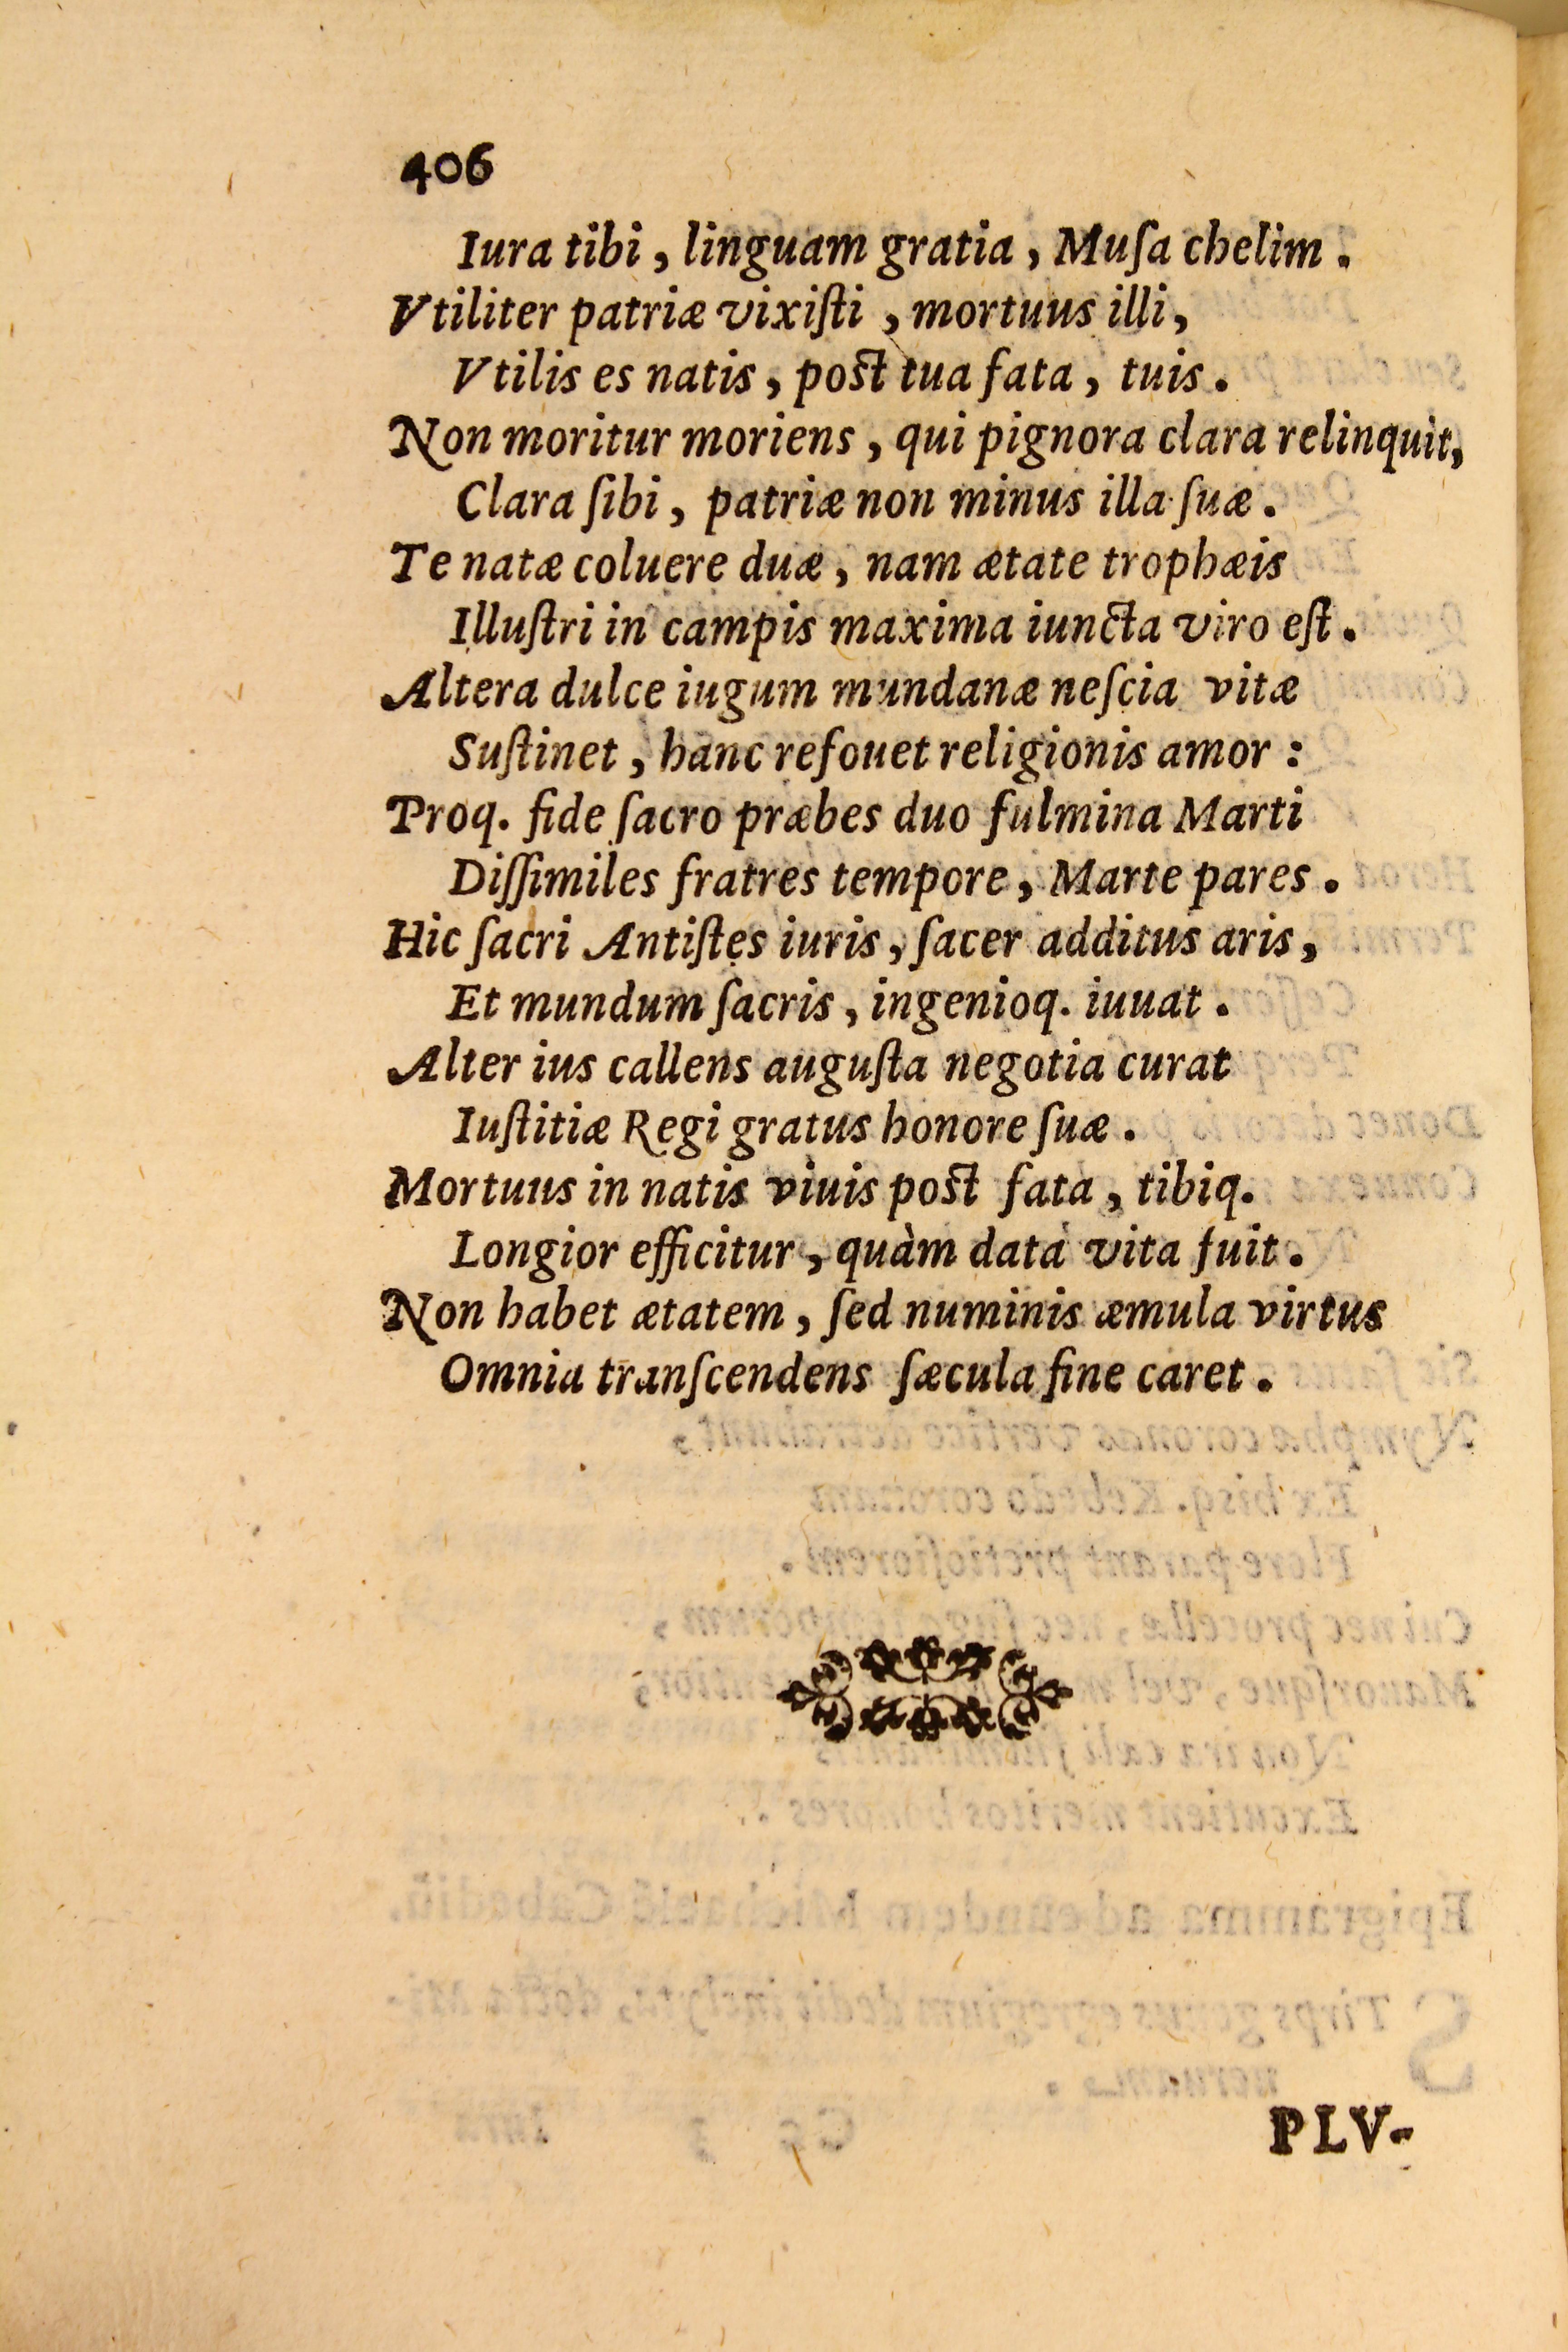 406
Iura tibi, linguam gratia, Muſa chelim.
Vtiliter patriæ vixiſti, mortuus illi,
Vtilis es natis, poſt tua fata, tuis.
Non moritur moriens, qui pignora clara relinquit,
Clara ſibi, patriæ non minus illa ſuæ.
Te natæ coluere duæ, nam ætate trophæis
Illuſtri in campis maxima iuncta viro eſt.
Altera dulce iugum mundanæ neſcia vitæ
Suſtinet, hanc refouet religionis amor:
Proq. fide ſacro præbes duo fulmina Marti
Diſſimiles fratres tempore, Marte pares.
Hic ſacri Antiſtes iuris, ſacer additus aris,
Et mundum ſacris, ingenioq. iuuat.
Alter ius callens auguſta negotia curat
Iuſtitiæ Regi gratus honore ſuæ.
Mortuus in natis viuis poſt fata, tibiq.
Longior efficitur, quàm data vita fuit.
Non habet ætatem, ſed numinis æmula virtus
Omnia tranſcendens ſæcula fine caret.
PLV-